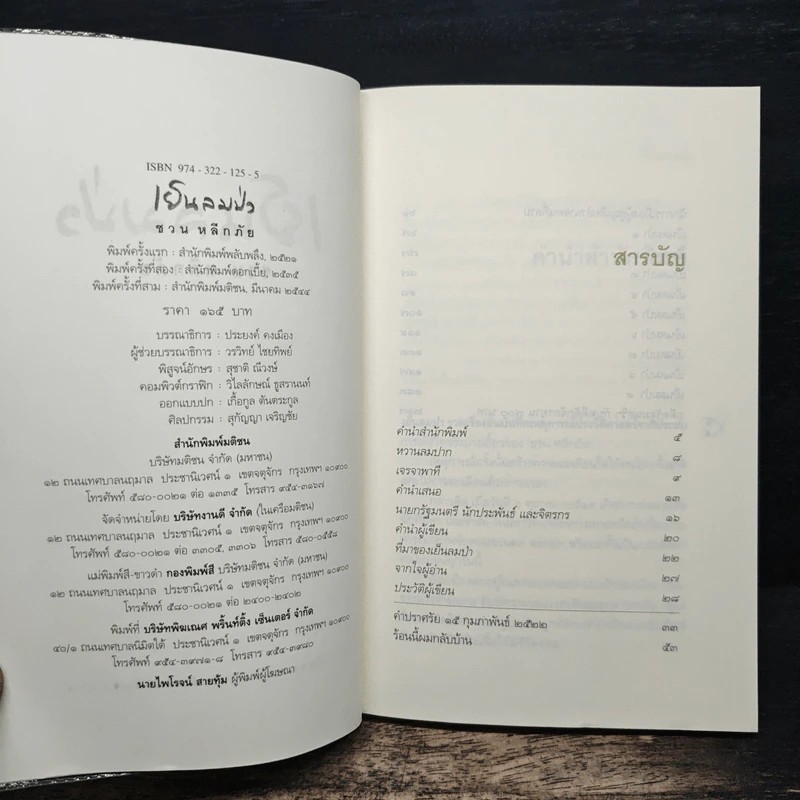 ISBN 974 - 322 - 125 - 5
เย็นลมป่า
ชวน หลีกภัย
พิมพ์ครั้งแรก : สำนักพิมพ์พลับพลึง, ๒๕๒๑
พิมพ์ครั้งที่สอง : สำนักพิมพ์ดอกเบี้ย, ๒๕๓๕
พิมพ์ครั้งที่สาม : สำนักพิมพ์มติชน, มีนาคม ๒๕๔๔
ราคา ๑๖๕ บาท
บรรณาธิการ : ประยงค์ คงเมือง
ผู้ช่วยบรรณาธิการ : วรวิทย์ ไชยทิพย์
พิสูจน์อักษร : สุชาติ ณีวงษ์
คอมพิวต์กราฟิก : วิไลลักษณ์ ชูสรานนท์
ออกแบบปก : เกื้อกูล ตันตระกูล
ศิลปกรรม : สุกัญญา เจริญชัย
สำนักพิมพ์มติชน
บริษัทมติชน จำกัด (มหาชน)
๑๒ ถนนเทศบาลนฤมาล ประชานิเวศน์ ๑ เขตจตุจักร กรุงเทพฯ ๑๐๙๐๐
โทรศัพท์ ๕๘๐-๐๐๒๑ ต่อ ๑๓๓๕ โทรสาร ๙๕๔-๓๑๖๗
จัดจำหน่ายโดย บริษัทงานดี จำกัด (ในเครือมติชน)
๑๒ ถนนเทศบาลนฤมาล ประชานิเวศน์ ๑ เขตจตุจักร กรุงเทพฯ ๑๐๙๐๐
โทรศัพท์ ๕๘๐-๐๐๒๑ ต่อ ๓๓๐๕, ๓๓๐๖ โทรสาร ๕๘๐-๐๕๕๘
แม่พิมพ์สี-ขาวดำ กองพิมพ์สี บริษัทมติชน จำกัด (มหาชน)
๑๒ ถนนเทศบาลนฤมาล ประชานิเวศน์ ๑ เขตจตุจักร กรุงเทพฯ ๑๐๙๐๐
โทรศัพท์ ๕๘๐-๐๐๒๑ ต่อ ๒๔๐๐-๒๔๐๒
พิมพ์ที่ บริษัทพิฆเณศ พริ้นท์ติ้ง เซ็นเตอร์ จำกัด
๔๐/๑ ถนนเทศบาลนิมิตใต้ ประชานิเวศน์ ๑ เขตจตุจักร กรุงเทพฯ ๑๐๙๐๐
โทรศัพท์ ๙๕๔-๓๙๗๑-๘ โทรสาร ๙๕๔-๓๙๘๐
นายไพโรจน์ สายทุ้ม ผู้พิมพ์ผู้โฆษณา
สารบัญ
คำนำสำนักพิมพ์ ๕
หวานลมปาก ๘
เจรจาพาที ๙
คำนำเสนอ ๑๓
นายกรัฐมนตรี นักประพันธ์ และจิตรกร ๑๖
คำนำผู้เขียน ๒๐
ที่มาของเย็นลมป่า ๒๒
จากใจผู้อ่าน ๒๗
ประวัติผู้เขียน ๒๘
คำปราศรัย ๑๕ กุมภาพันธ์ ๒๕๒๒ ๓๓
ร้อนนี้ผมกลับบ้าน ๕๓